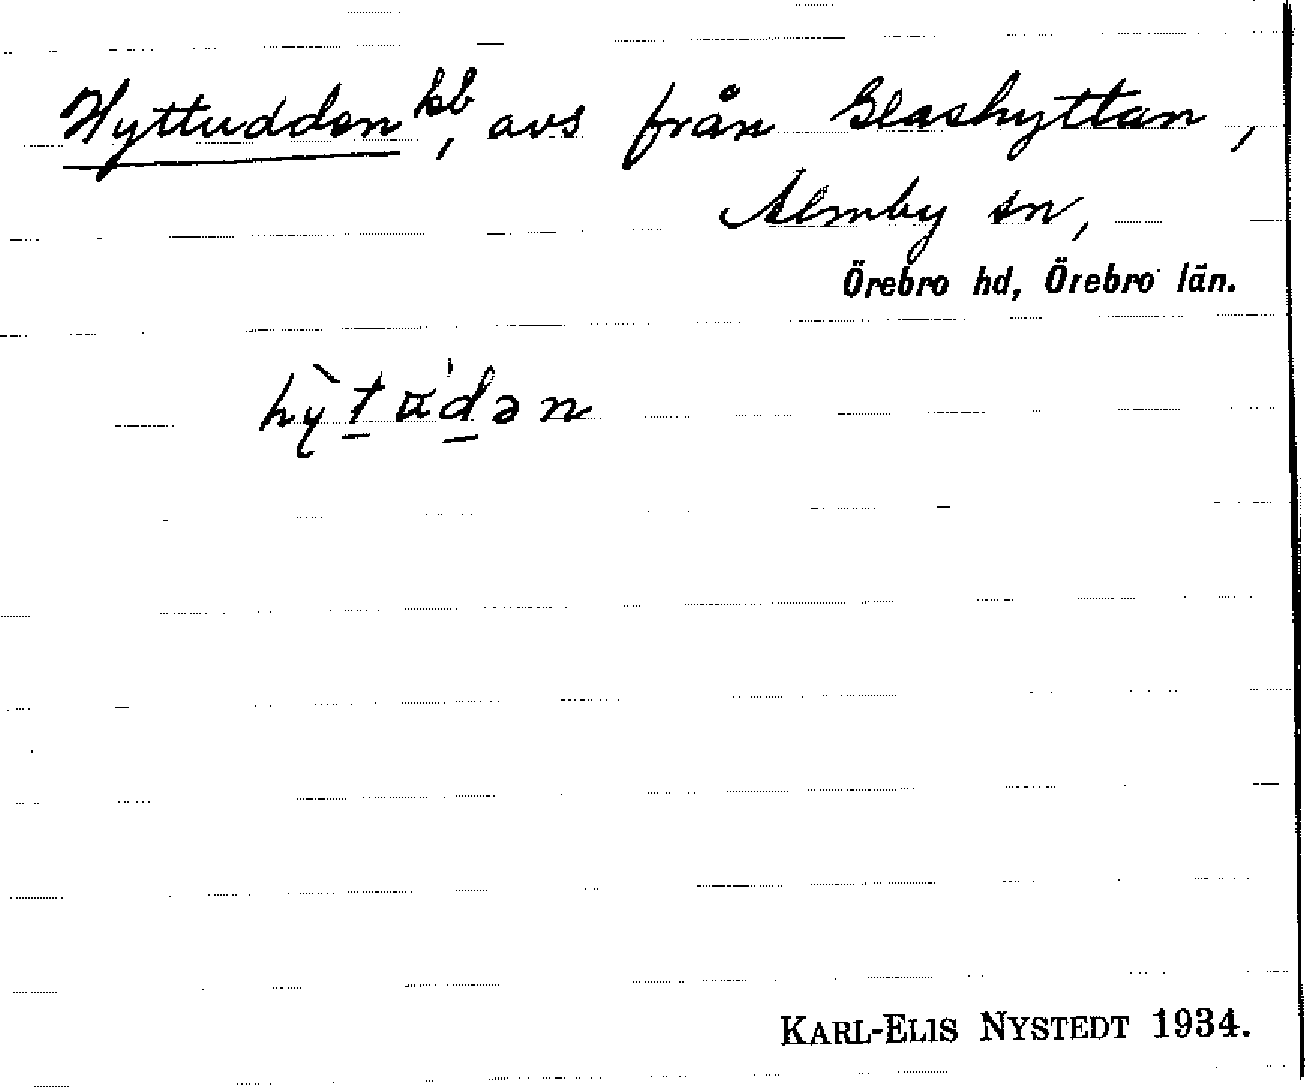 Hyttudden kb, avs från Glashyttan,
Almby sn,
Örebro hd, Örebro län.
hỳtu̇dən
KARL-ELIS NYSTEDT 1934.